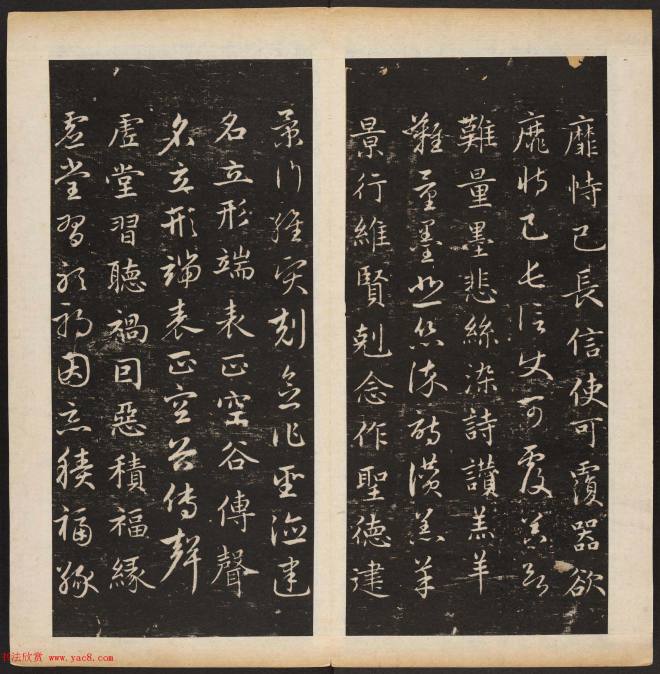 靡恃己長信使可覆器欲
靡恃己長信使可覆器欲
難量墨悲絲染詩讚羔羊
難量墨悲絲染詩讚羔羊
景行維賢剋念作聖德建
景行維賢剋念作聖德建
名立形端表正空谷傳聲
名立形端表正空谷傳聲
虛堂習聽禍因惡積福緣
虛堂習聽禍因惡積福緣
书法欣赏 www.yac8.com